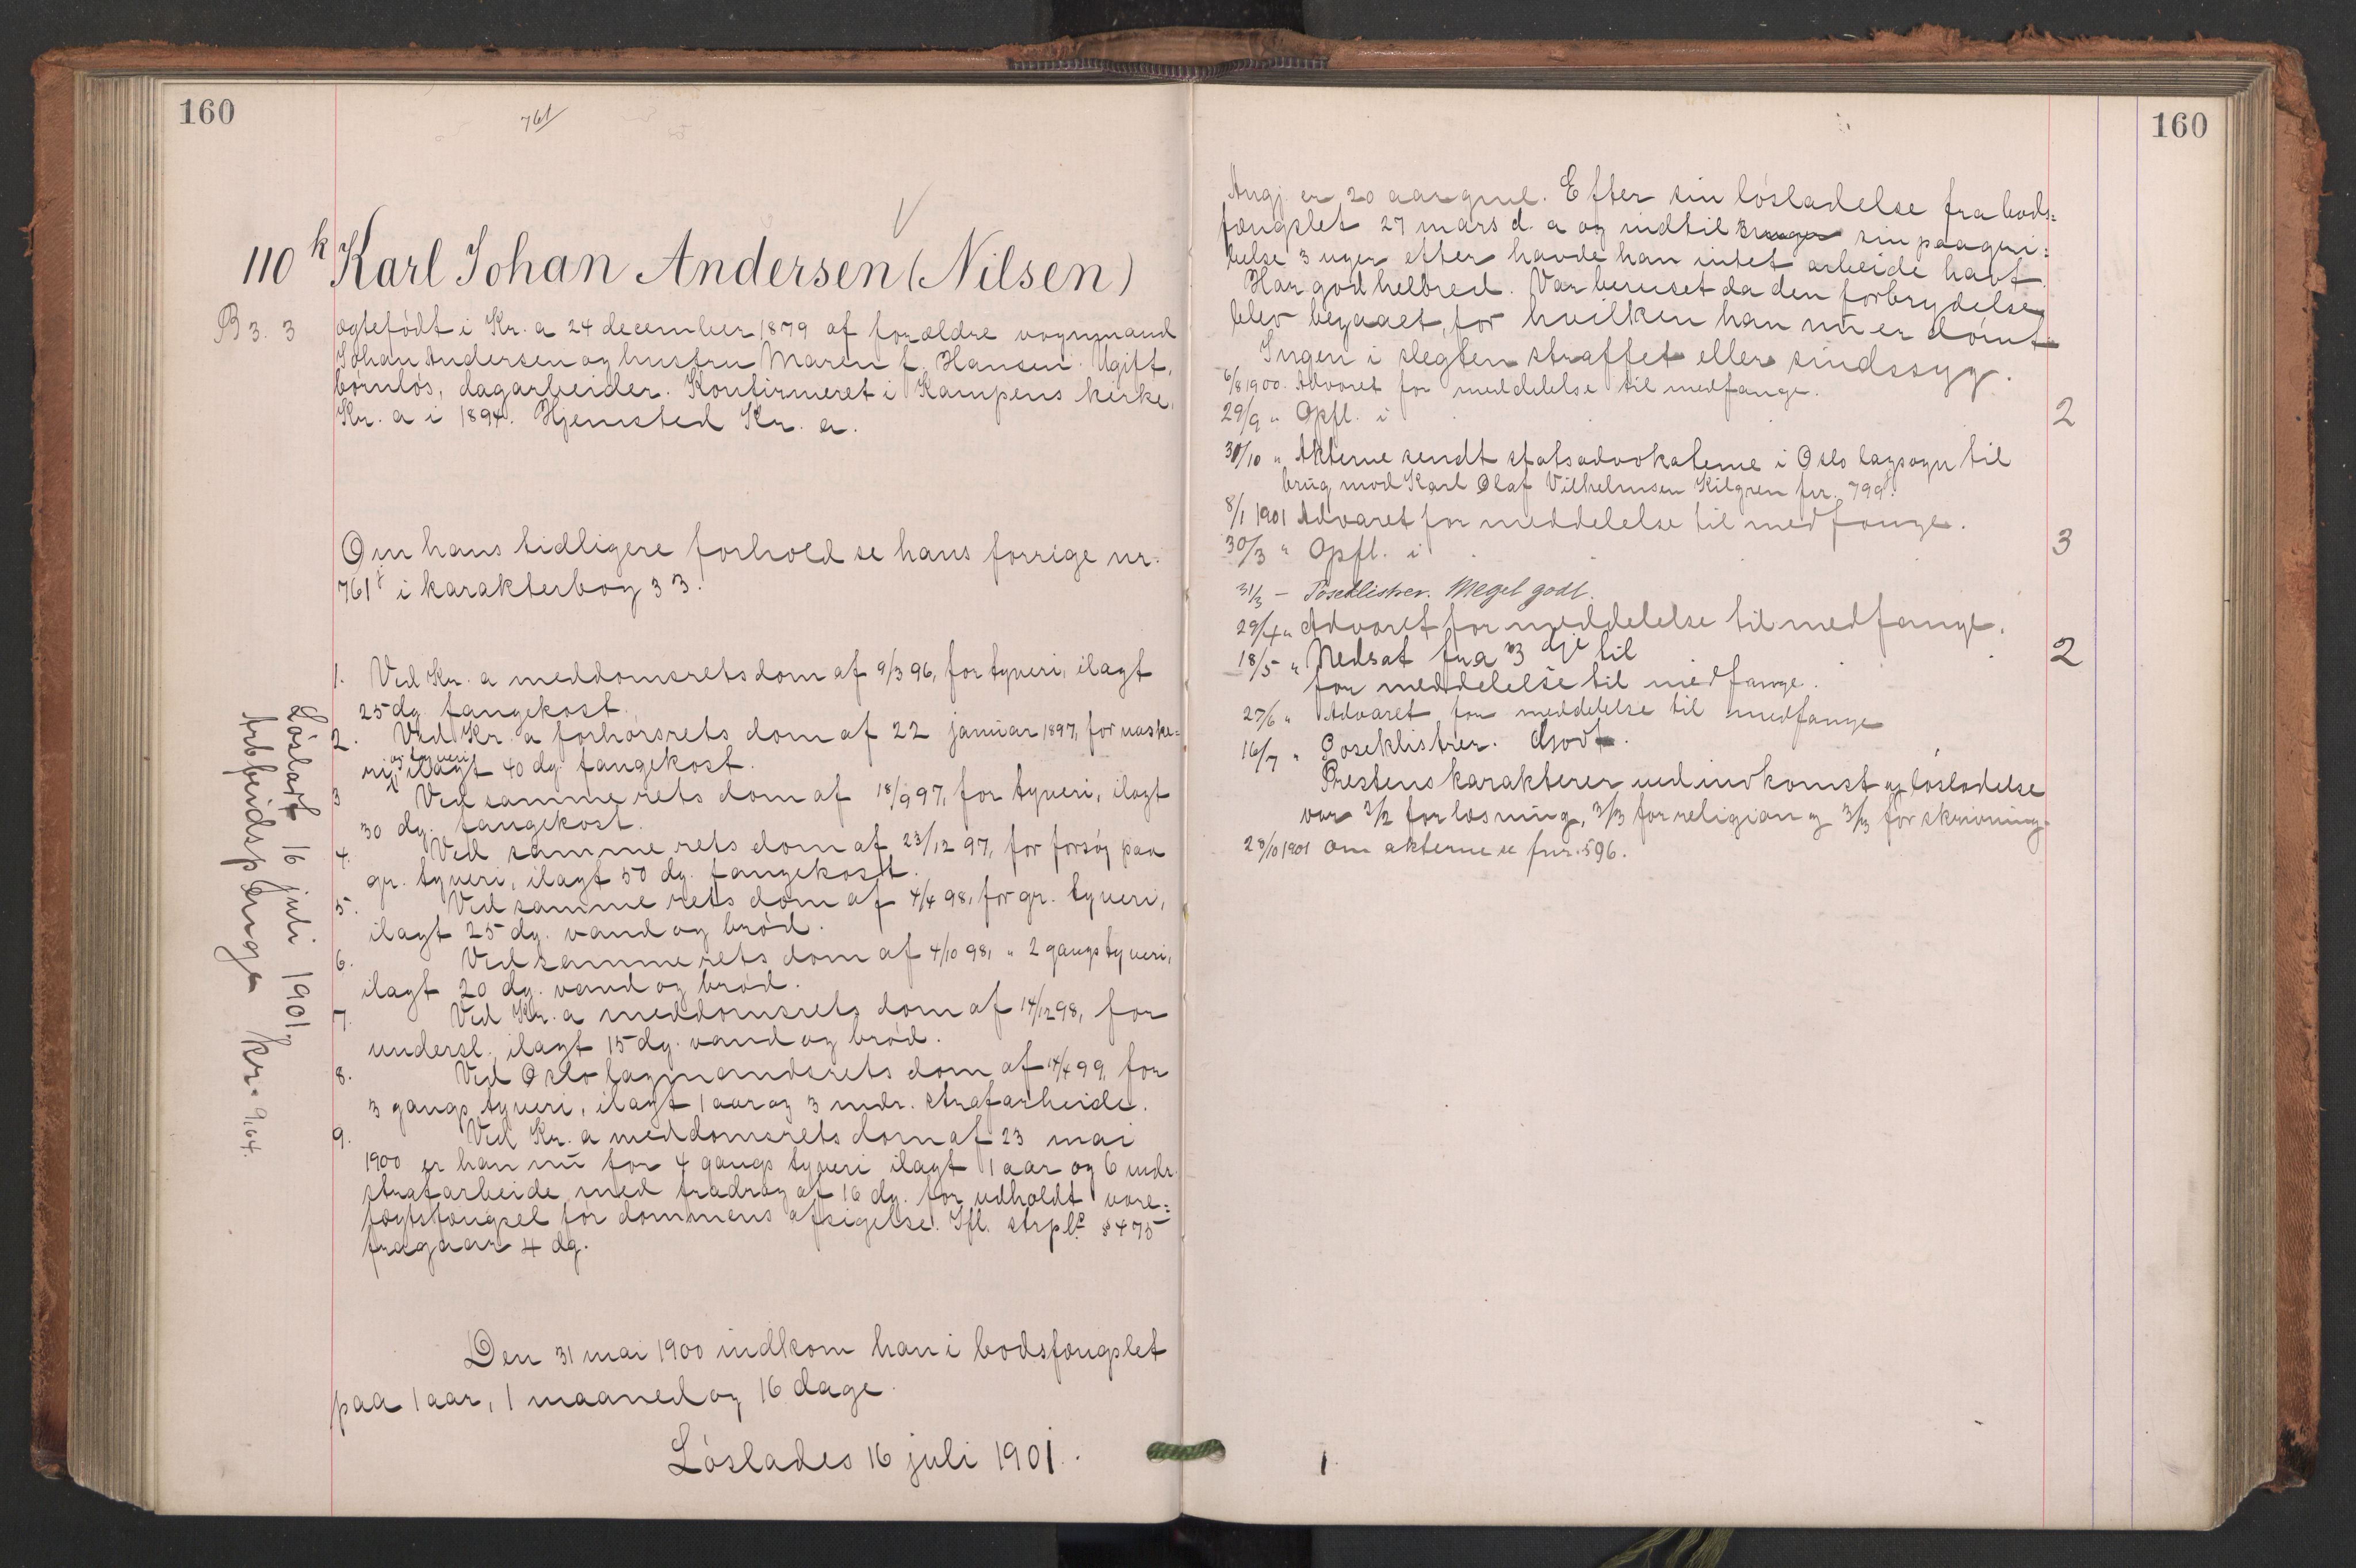 160
761
110 k Karl Johan Andersen (Nilsen)
B 3. 3
ægtefødt i Kr. a 24 december 1879 af forældre vognmand
Johan Andersen og hustru Maren f. Hansen. Ugift,
børnløs, dagarbeider. Konfirmeret i Kampens kirke,
Kr. a i 1894. Hjemsted Kr. a.
Om hans tidligere forhold se hans forrige nr.
761 i i karakterbog 33.
1. Ved Kr. a meddomsrets dom af 9/3 96, for tyveri, ilagt
25 dg. fangekost.
2. Ved Kr. a forhørsrets dom af 22 januar 1897, for naske-
ri og tyveri ilagt 40 dg. fangekost.
3 Ved samme rets dom af 18/9 97, for tyveri, ilagt
30 dg. fangekost.
4. Ved samme rets dom af 23/12 97, for forsøg paa
gr. tyveri, ilagt 50 dg. fangekost.
5. Ved samme rets dom af 4/4 98, for gr. tyveri,
ilagt 25 dg. vand og brød.
6. Ved samme rets dom af 4/10 98, " 2 gangs tyveri,
ilagt 20 dg. vand og brød.
7. Ved Kr. a meddomsrets dom af 14/12 98, for
undersl. ilagt 15 dg. vand og brød.
8. Ved Oslo lagmandsrets dom af 14/4 99, for
3 gangs tyveri, ilagt 1 aar og 3 mdr. strafarbeide.
9. Ved Kr. a meddomsrets dom af 23 mai
1900 er han nu for 4 gangs tyveri ilagt 1 aar og 6 mdr.
strafarbeide med fradrag af 16 dg. for udholdt vare-
tægtsfængsel før dommens afsigelse. Ifl. strpl. § 475
fragaar 4 dg.
Den 31 mai 1900 indkom han i bodsfængslet
paa 1 aar, 1 maaned og 16 dage.
Løslades 16 juli 1901.
Løsladt 16 juli 1901,
Arbeidspenge kr. 9,64.
160
Angj. er 20 aar gml. Efter sin løsladelse fra bods-
fængslet 27 mars d. a og indtil 3 uger sin paagri-
belse 3 uger efter havde han intet arbeide havt.
Har god helbred. Var beruset da den forbrydelse
blev begaaet, for hvilken han nu er dømt.
Ingen i slegten straffet eller sindssyg.
6/8 1900. Advaret for meddelelse til medfange.
29/9 " Opfl. i 2
30/10 " Akterne sendt statsadvokaterne i Oslo lagsogn til
brug mod Karl Olaf Vilhelmsen Kilgren fnr. 799
8/1 1901 Advaret for meddelelse til medfange.
30/3 " Opfl. i 3
31/3 - Poseklistrer. Meget godt.
29/4 " Advaret for meddelelse til medfange.
18/5 " Nedsat fra 3 dje til 2
for meddelelse til medfange.
27/6 " Advaret for meddelelse til medfange
16/7 " Poseklistrer. Godt.
Prestens karakterer ved indkomst og løsladelse
var 3/2 for læsning, 3/3 for religion og 3/3 for skrivning.
23/10 1901 Om akterne se fnr. 596.
1